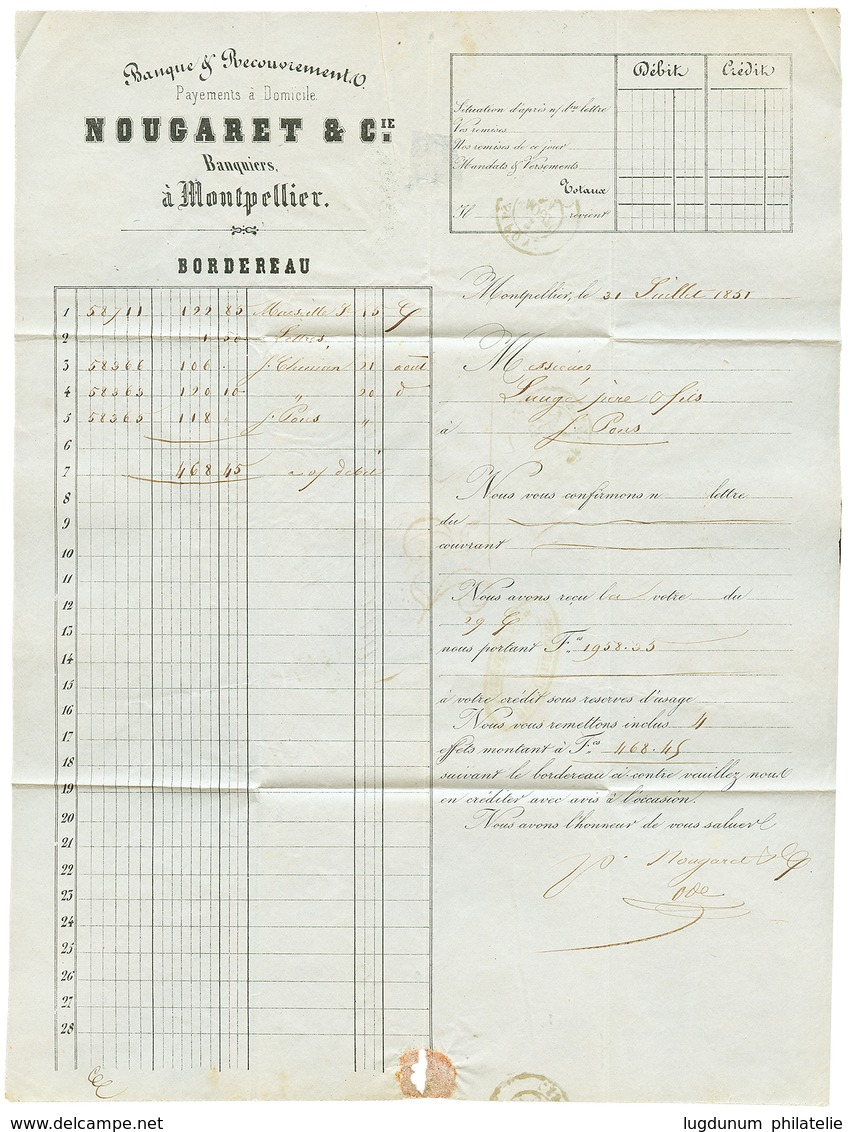 Banque & Recouvrements.
Payements à Domicile.
NOUGARET & CIE.
Banquiers,
à Montpellier.
BORDEREAU
Débit Crédit
Situation d'après n/ dre lettre
Vos remises
Nos remises de ce jour
Mandats & Versements
Totaux
Il revient
1 58711 122 85 Marseille 15
2 1 50 Lettres
3 58366 106 . 21 août
4 58363 120 10 " 20 d
5 58365 118 . St Pons "
6
7 468 45 a v/ débit
8
9
10
11
12
13
14
15
16
17
18
19
20
21
22
23
24
25
26
27
28
Montpellier, le 31 Juillet 1851
Messieurs
Laugé père & fils
à St Pons
Nous vous confirmons n lettre
du
couvrant
Nous avons reçu la votre du
29 Ct
nous portant Fcs 1958.35
à votre crédit sous reserves d'usage
Nous vous remettons inclus 4
effets montant à Fcs 468.45
suivant le bordereau ci-contre veuillez nous
en créditer avec avis à l'occasion.
Nous avons l'honneur de vous saluer
Nougaret & Cie
lugdunum philatelie